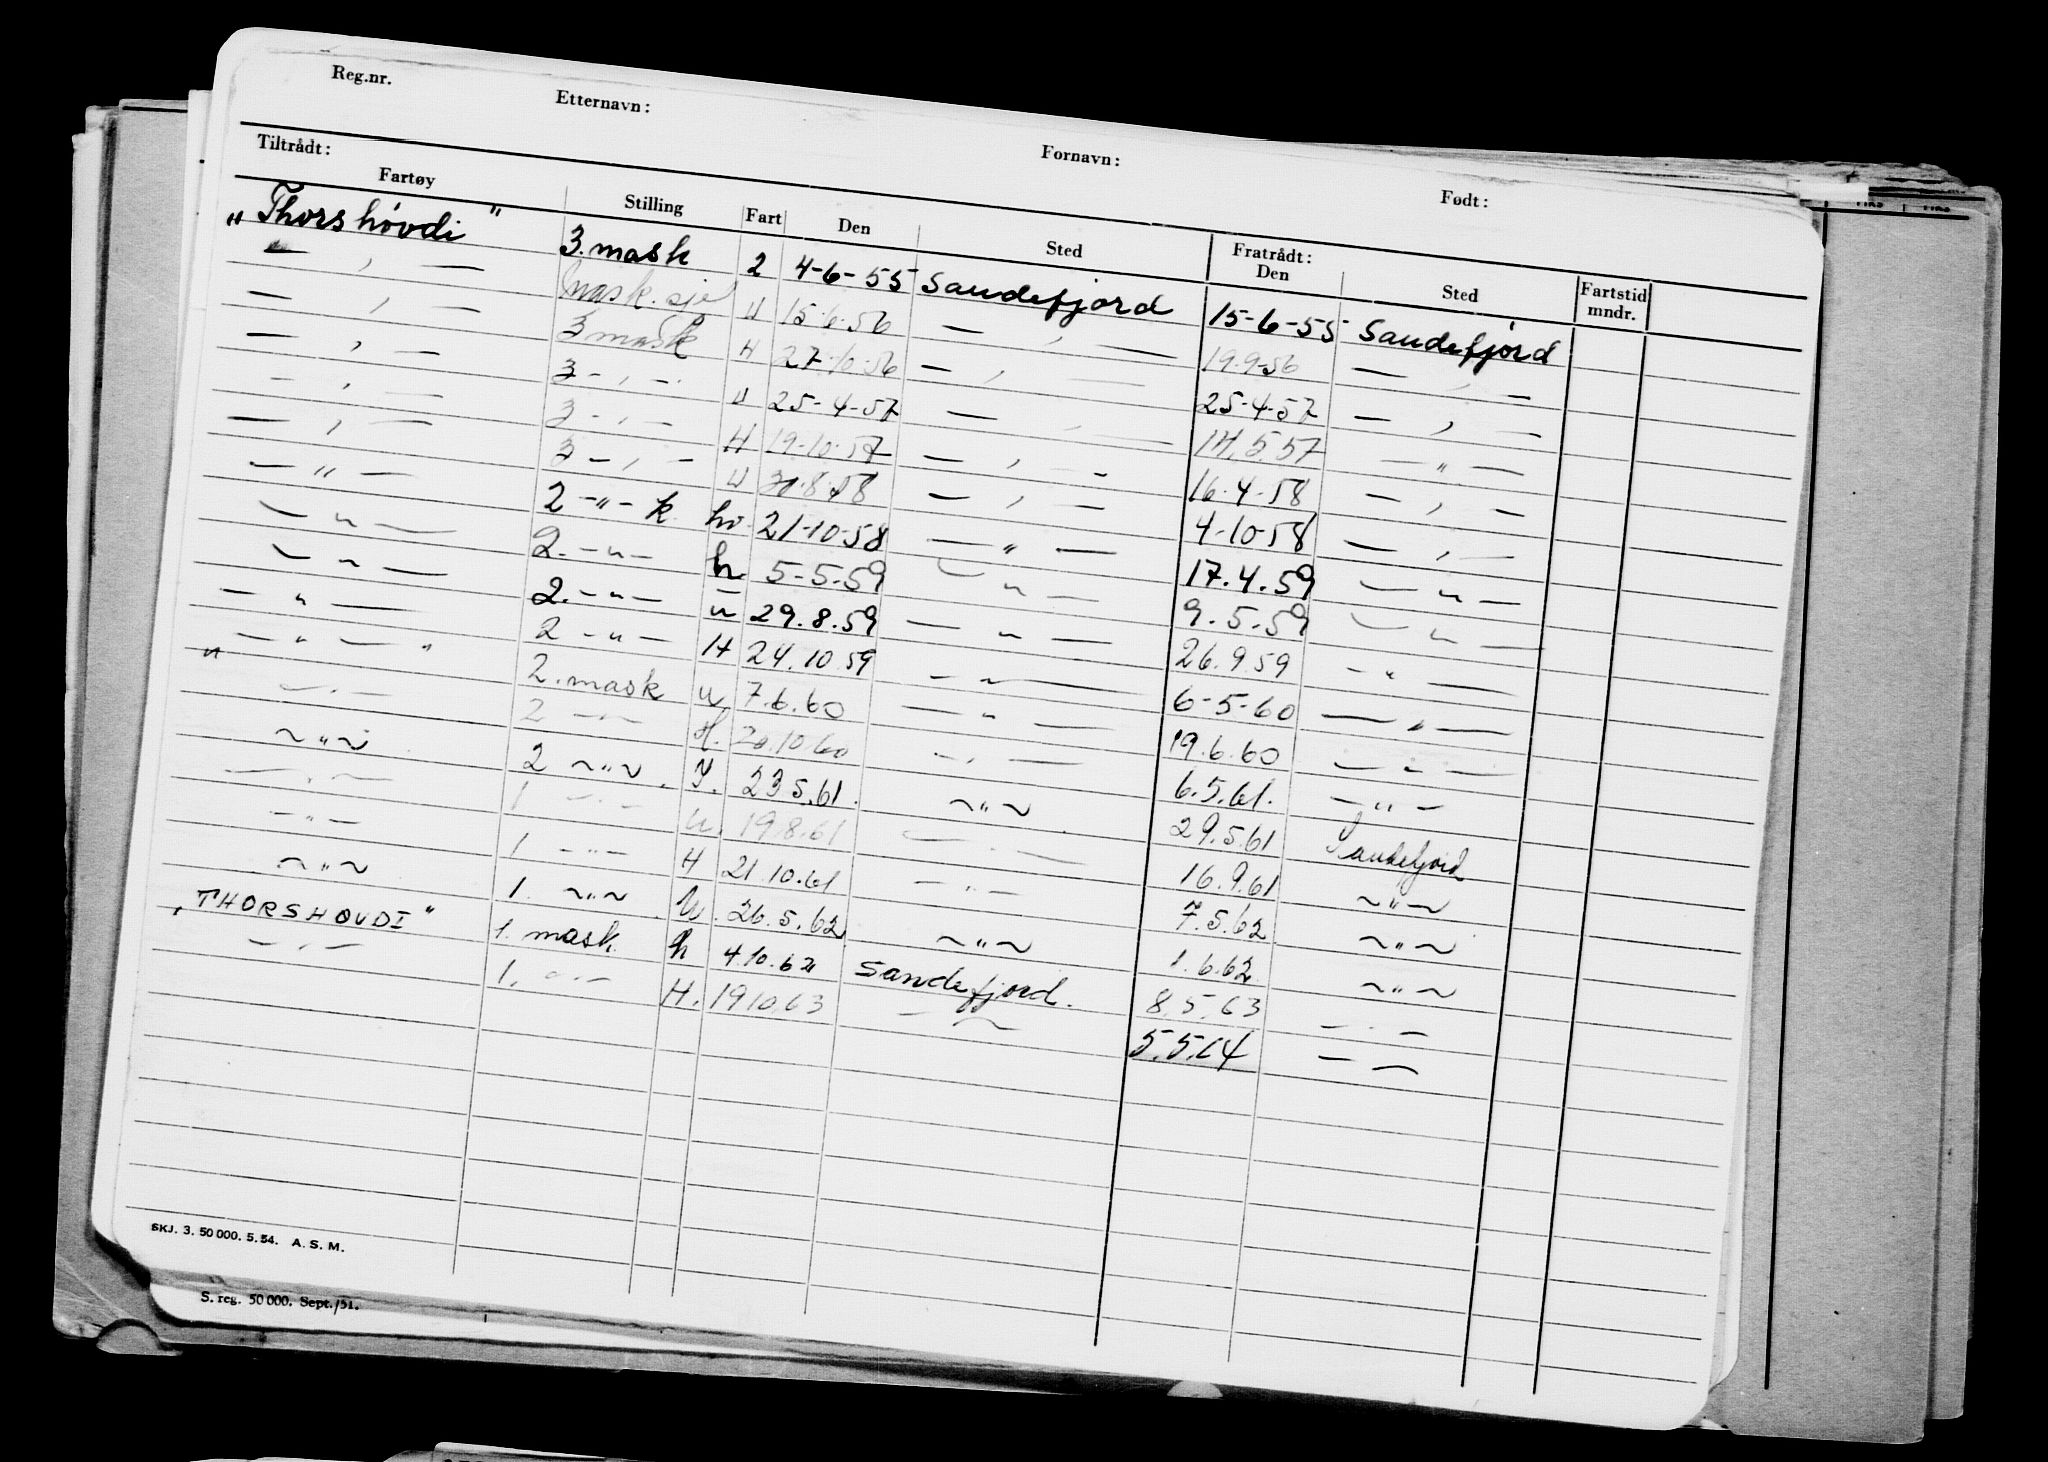 Reg.nr. Etternavn: Fornavn: Født:
Tiltrådt: Fratrådt:
Fartøy Stilling Fart Den Sted Den Sted Fartstid mndr.
„Thorshövdi" 3. mask 2 4-6-55 Sandefjord 15-6-55 Sandefjord
— , — mask. U 15.6.56 — , — 19.9.56 — , —
— , — 3 mask H 27.10.56 — , — 25-4-57 — , —
— , — 3 - , - U 25-4-57 — , — 14.5.57 — „ —
— , — 3 - , - H 19-10-57 — , - 16.4.58 — , —
— , — 3 - , - U 30.8.58 — , — 4-10-58 — , —
— „ — 2 -„- k. hv. 21-10-58 — „ — 17.4.59 — „ —
— „ — 2. -„- h 5-5-59 — „ — 9.5.59 — „ —
— „ — 2. -„- u 29.8.59 — „ — 26.9.59 - „ —
— „ — 2 -„- H 24.10.59 — „ — 6-5-60 — „ —
„ — „ — " 2. mask u 7.6.60 — „ — 19.6.60 — „ —
— . — 2 -„- H. 20.10.60 - . — 6.5.61. — „ —
~ „ ~ 2 ~ „ ~ . 23 5.61. ~ „ ~ 29.5.61 Sandefjord
— . — 1 - . - U. 19.8.61 — . — 16.9.61 ~ „ ~
- „ - 1 - „ - H 21.10.61 — . — 7.5.62 ~ „ ~
~ „ ~ 1. ~ „ ~ U. 26.5.62 ~ „ ~ 1.6.62 ~ „ ~
„THORSHØVDI" 1. mask. h 4.10.62 Sandefjord. 8.5.63 — . —
— , — 1. - „ - H. 19 10.63 — ~ 5.5.64 — ~
SKJ. 3. 50 000. 5. 54. A. S. M.
S. reg. 50 000. Sept./51.